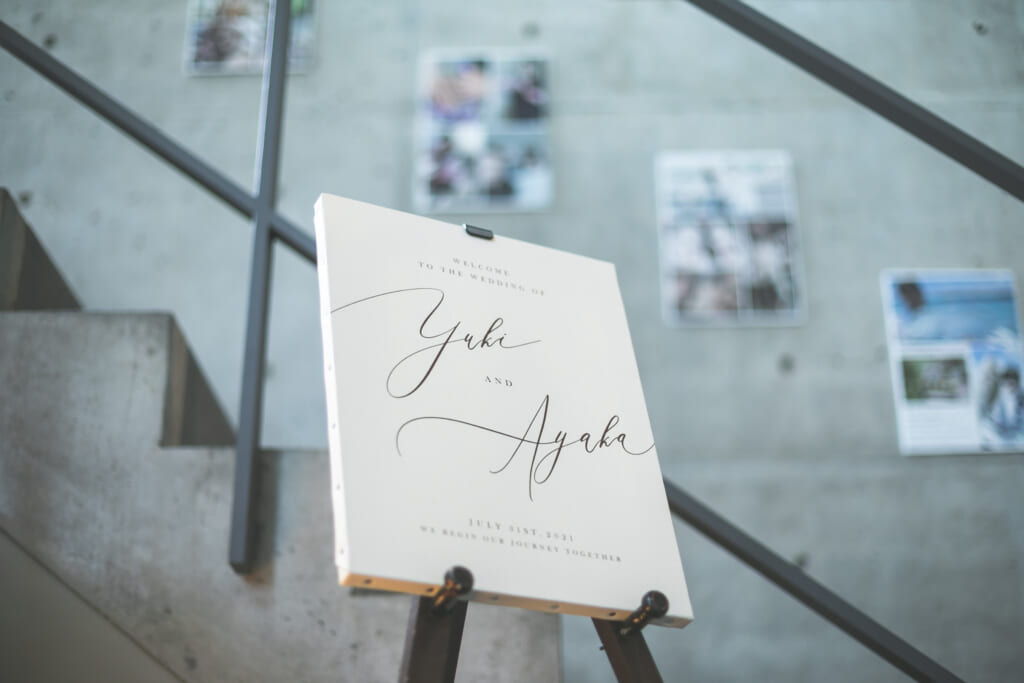 WELCOME
TO THE WEDDING OF
Yuki
AND
Ayaka
JULY 31ST, 2021
WE BEGIN OUR JOURNEY TOGETHER